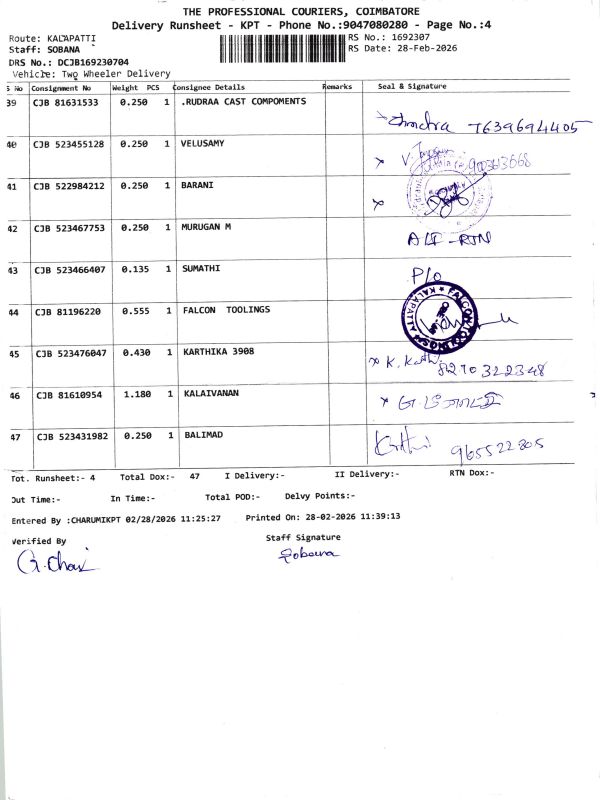 THE PROFESSIONAL COURIERS, COIMBATORE
Delivery Runsheet - KPT - Phone No.:9047080280 - Page No.:4
Route: KALAPATTI RS No.: 1692307
Staff: SOBANA RS Date: 28-Feb-2026
DRS No.: DCJB169230704
Vehicle: Two Wheeler Delivery
S No Consignment No Weight PCS Consignee Details Remarks Seal & Signature
39 CJB 81631533 0.250 1 .RUDRAA CAST COMPOMENTS 7639694405
40 CJB 523455128 0.250 1 VELUSAMY
41 CJB 522984212 0.250 1 BARANI
42 CJB 523467753 0.250 1 MURUGAN M
43 CJB 523466407 0.135 1 SUMATHI P/o
44 CJB 81196220 0.555 1 FALCON TOOLINGS
45 CJB 523476047 0.430 1 KARTHIKA 3908 8270322348
46 CJB 81610954 1.180 1 KALAIVANAN
47 CJB 523431982 0.250 1 BALIMAD
Tot. Runsheet:- 4 Total Dox:- 47 I Delivery:- II Delivery:- RTN Dox:-
Out Time:- In Time:- Total POD:- Delvy Points:-
Entered By :CHARUMIKPT 02/28/2026 11:25:27 Printed On: 28-02-2026 11:39:13
Verified By Staff Signature
Sobana